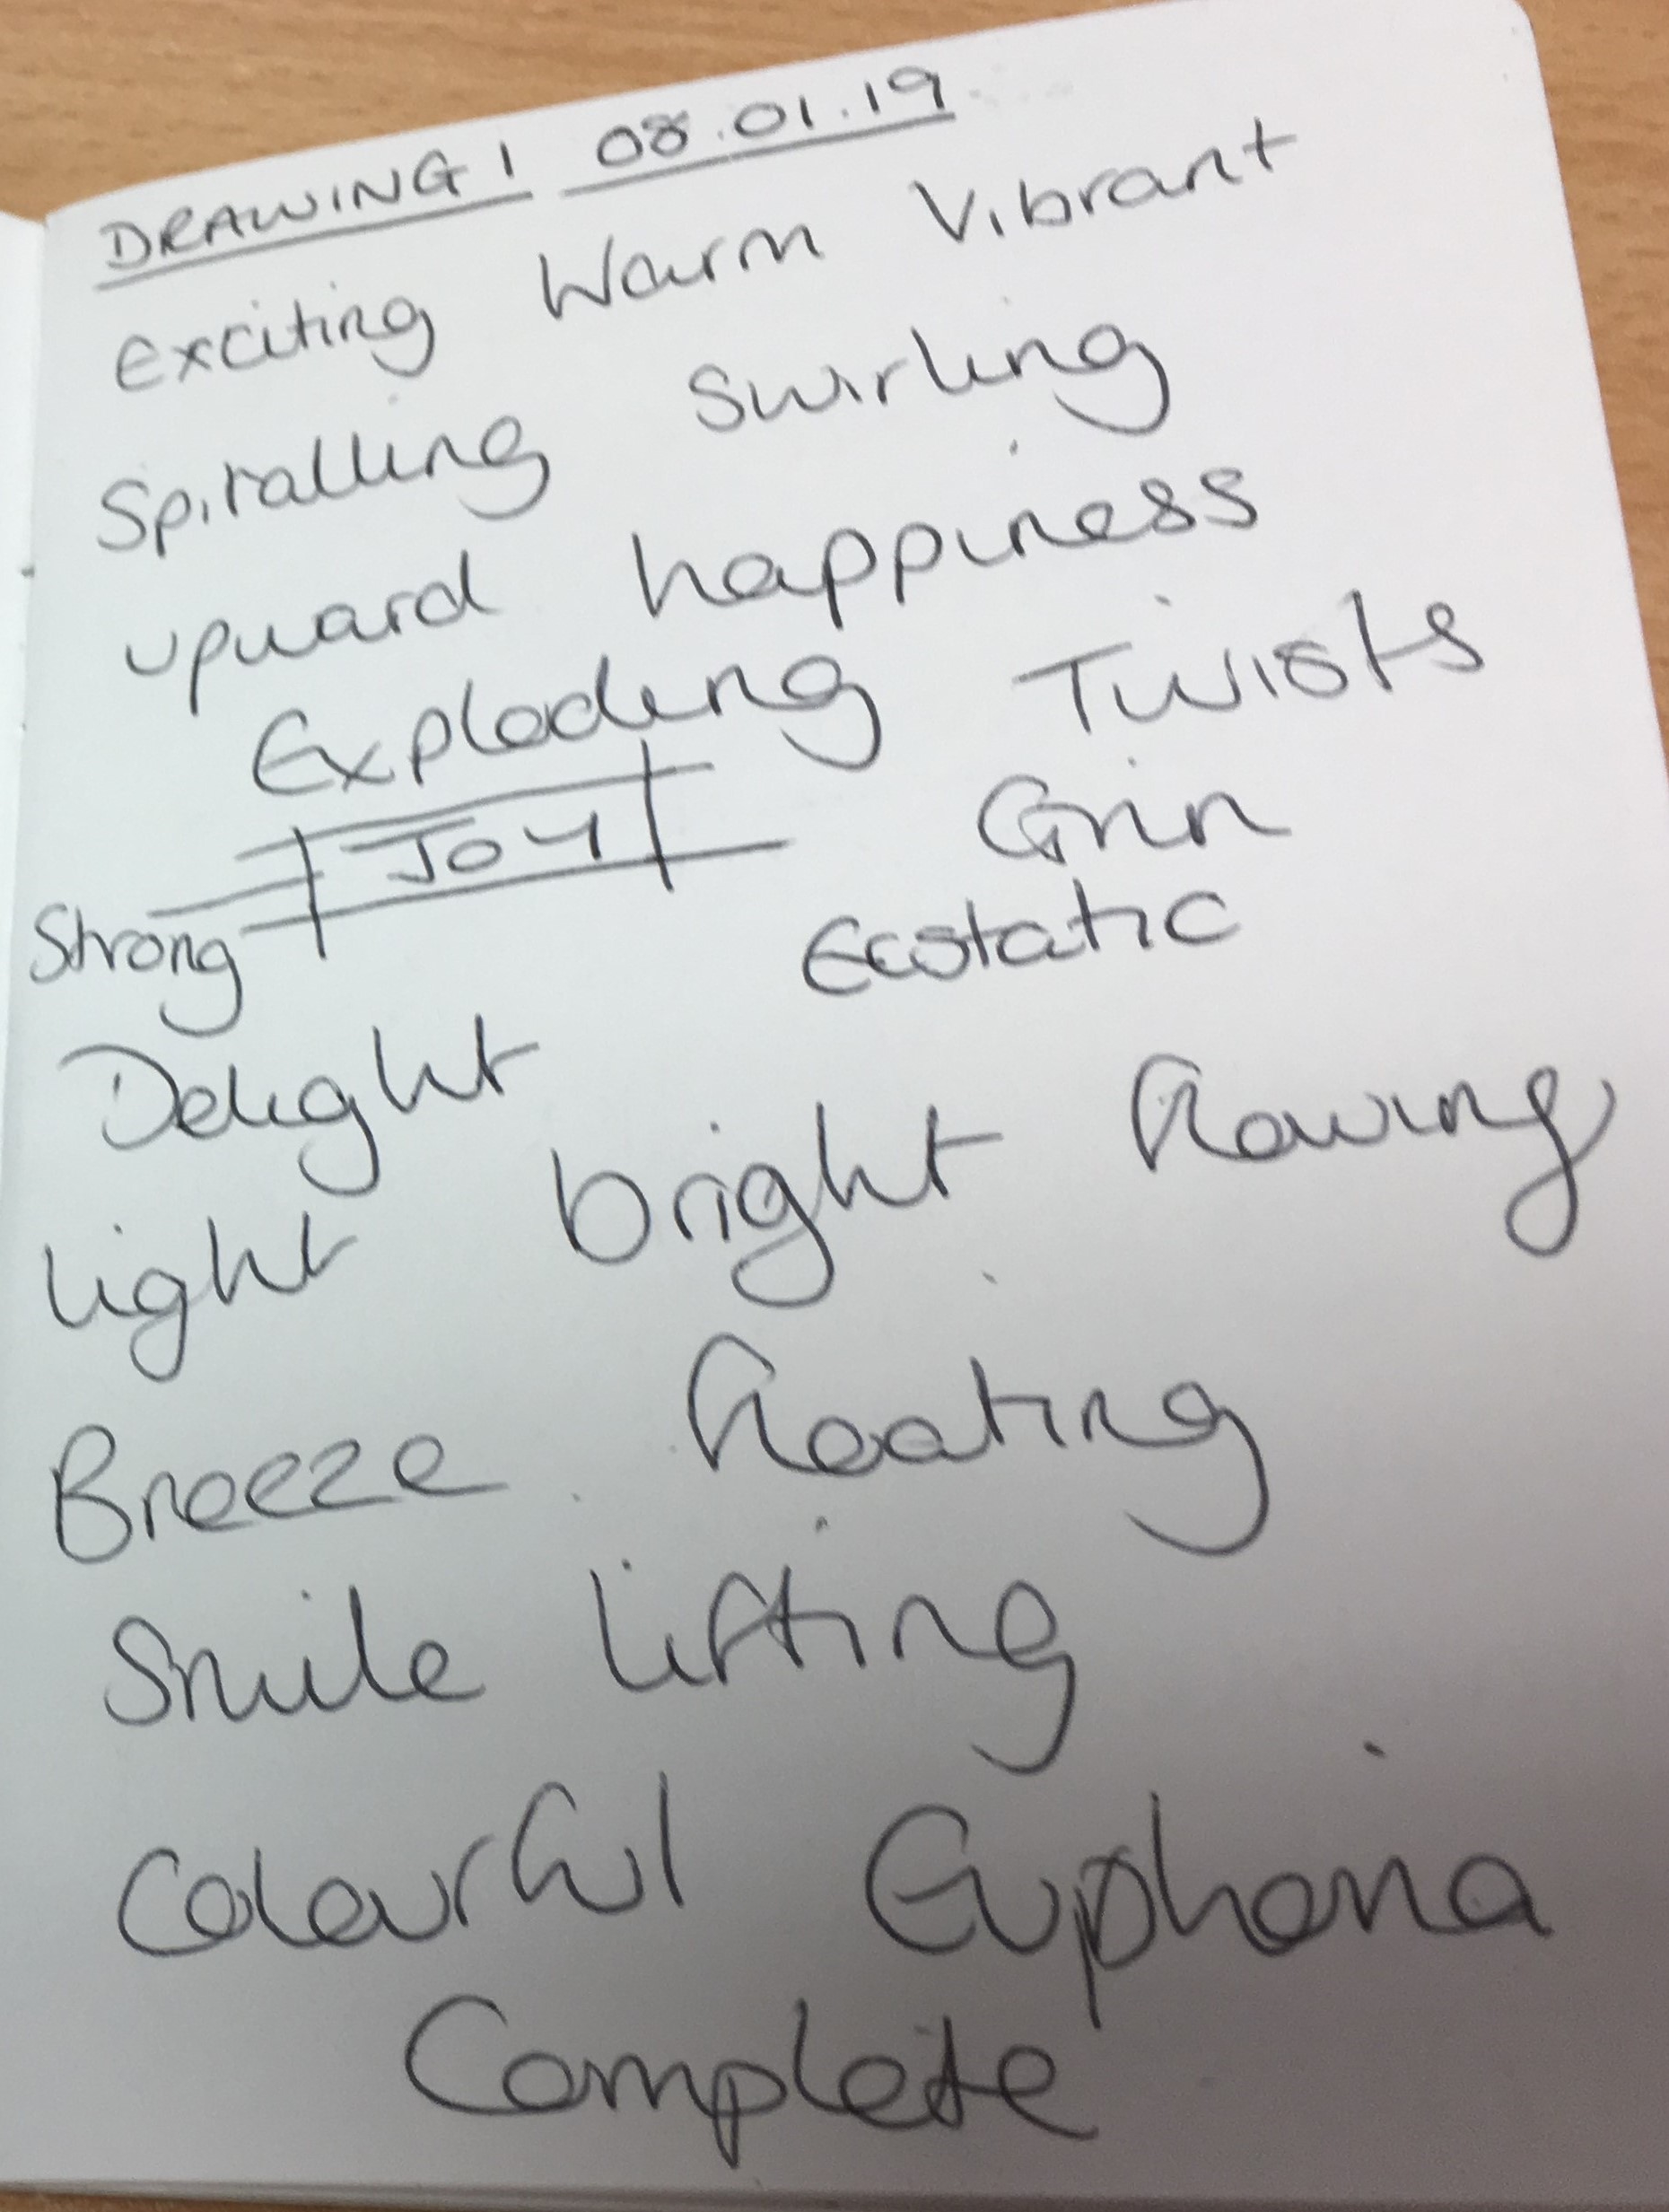 DRAWING 1 08.01.19
Exciting Warm Vibrant
Spiralling Swirling
upward happiness
Exploding Twists
JOY Grin
Strong Ecstatic
Delight
light bright flowing
Breeze floating
Smile lifting
Colourful Euphoria
Complete